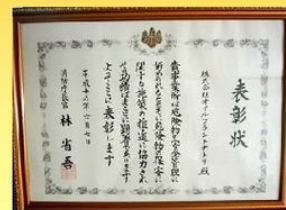 表彰状
株式会社オイルプラントナトリ殿
貴事業所は危険物の安全管理に
努められるとともに危険物の保安に
関する施策の推進に協力され
その功績はまことに顕著であります
よってここに表彰します
平成十六年六月七日
消防庁長官
林省吾